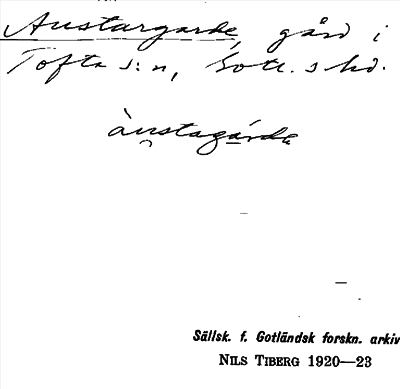 Austargarde, gård i
Tofta s:n, Gotl. s hd.
àu̯stagárde
Sällsk. f. Gotländsk forskn. arkiv
NILS TIBERG 1920—23